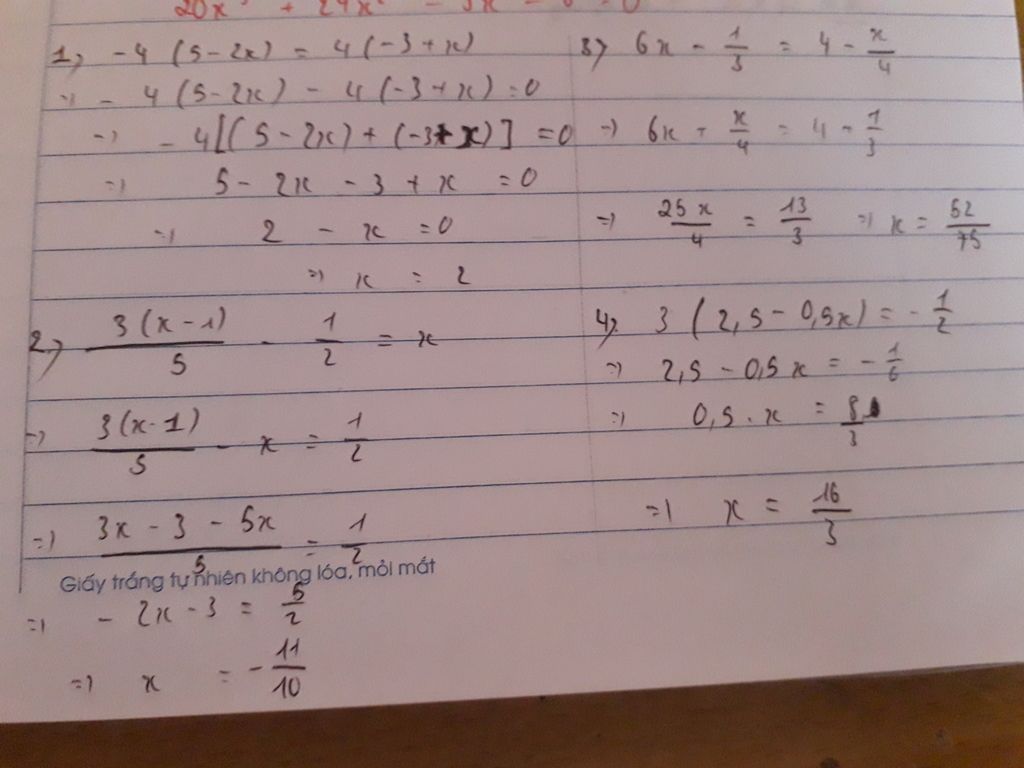 20x³ + 24x²
1, -4 (5-2x) = 4(-3+x)
=> - 4(5-2x) - 4(-3+x)=0
=> -4[(5-2x)+(-3+x)] =0
=> 5 - 2x - 3 + x =0
=> 2 - x =0
=> x = 2
2, 3(x-1)/5 - 1/2 = x
=> 3(x-1)/5 - x = 1/2
=> 3x - 3 - 5x/5 = 1/2
Giấy trắng tự nhiên không lóa, mỏi mắt
=> - 2x - 3 = 5/2
=> x = - 11/10
3, 6x - 1/3 = 4 - x/4
=> 6x + x/4 = 4 + 1/3
=> 25x/4 = 13/3 => x = 52/75
4, 3 (2,5 - 0,5x) = - 1/2
=> 2,5 - 0,5x = - 1/6
=> 0,5.x = 8/3
=> x = 16/3